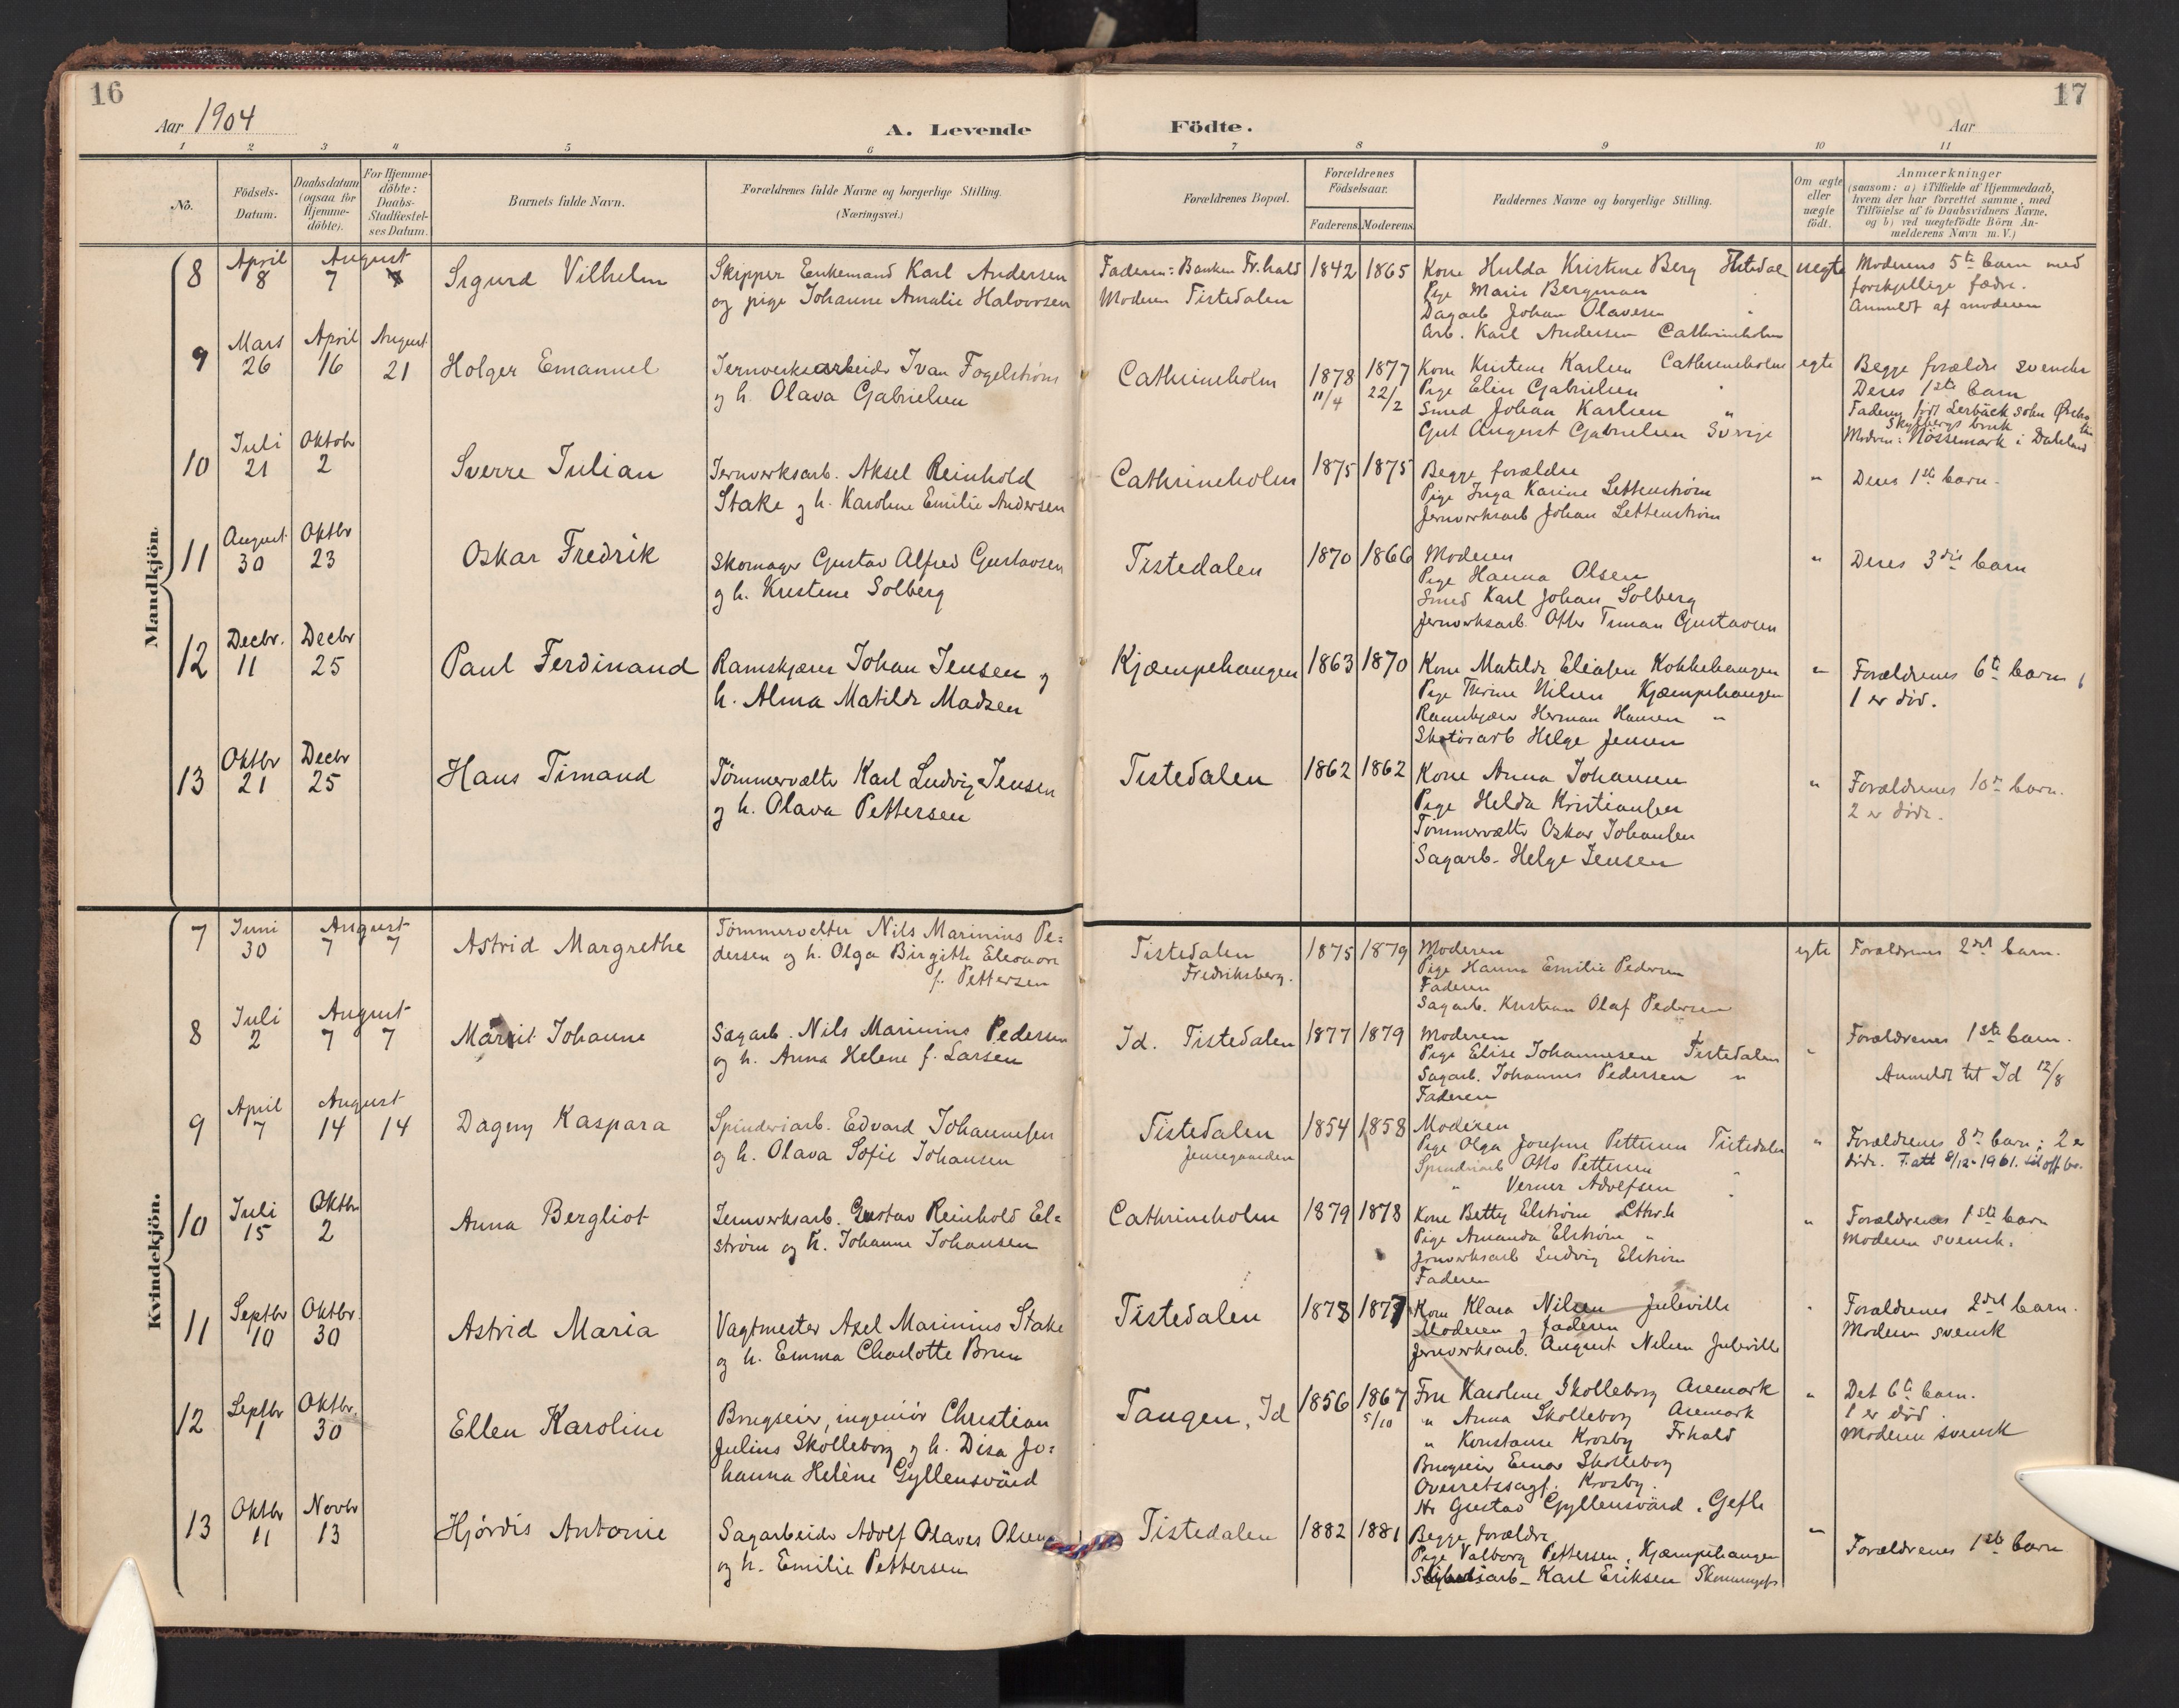 16
17
Aar 1904
A. Levende Födte.
Aar
1 2 3 4 5 6 7 8 9 10 11
No.
Födsels-
Datum.
Daabsdatum
(ogsaa for
Hjemme-
döbte).
For Hjemme-
döbte:
Daabs-
Stadfæstel-
ses Datum.
Barnets fulde Navn.
Forældrenes fulde Navne og borgerlige Stilling.
(Næringsvei.)
Forældrenes Bopæl.
Forældrenes
Födselsaar.
Faderens. Moderens.
Faddernes Navne og borgerlige Stilling.
Om ægte
eller
uægte
født.
Anmærkninger
(saasom: a) i Tilfælde af Hjemmedaab,
hvem der har forrettet samme, med
Tilföielse af to Daabsvidners Navne.
og b) ved uægtefödte Börn An-
melderens Navn m. V.)
Mandkjön.
8
April
8
August
7
Sigurd Vilhelm
Skipper Enkemand Karl Andersen
og pige Johanne Amalie Halvorsen
Faderen: Banken Fr.hald
Moderen Tistedalen
1842 1865
Kone Hulda Kristine Berg Tistedal
Pige Marie Bergman
Dagarb Johan Olavesen "
Arb. Karl Andersen Cathrineholm
uegte
Moderens 5te barn med
forskjellige fædre.
Anmeldt af moderen
9
Mars
26
April
16
August
21
Holger Emanuel
Jernverksarbeider Ivan Fogelström
og h. Olava Gabrielsen
Cathrineholm
1878 1877
11/4 22/2
Kone Kristine Karlsen Cathrineholm
Pige Elin Gabrielsen "
Smed Johan Karlsen "
Gut August Gabrielsen Sverige
egte
Begge forældre svenske
Deres 1ste barn
Faderen født Lerbäck sokn
Skyllbergs bruk
Moderen: Nössemark i Dalsland
10
Juli
21
Oktobr
2
Sverre Julian
Jernverksarb. Aksel Reinhold
Stake og h. Karoline Emilie Andersen
Cathrineholm
1875 1875
Begge forældre
Pige Inga Karine Lettenström
Jernverksarb Johan Lettenström
"
Deres 1ste barn.
11
August
30
Oktbr
23
Oskar Fredrik
Skomager Gustav Alfred Gustavsen
og h. Kristine Solberg
Tistedalen
1870 1866
Moderen
Pige Hanna Olsen
Smed Karl Johan Solberg
Jernverksarb. Otter Timan Gustavsen
"
Deres 3die barn
12
Decbr.
11
Decbr
25
Paul Ferdinand
Ramskjærer Johan Jensen og
h. Alma Matilde Madsen
Kjæmpehaugen
1863 1870
Kone Matilde Eliasen Kokkehaugen
Pige Thrine Nilsen Kjæmpehaugen
Ramskjærer Herman Hansen "
Skotöiarb Helge Jensen
"
Forældrenes 6te barn
1 er död.
13
Oktbr
21
Decbr
25
Hans Timand
Tömmervælter Karl Ludvig Jensen
og h. Olava Pettersen
Tistedalen
1862 1862
Kone Anna Johansen
Pige Helda Kristiansen
Tömmervælter Oskar Johansen
Sagarb. Helge Jensen
"
Forældrenes 10de barn.
2 er döde.
Kvindekjön.
7
Juni
30
August
7 7
Astrid Margrethe
Tömmervelter Nils Marinius Pe=
dersen og h. Olga Birgitte Eleonore
f. Pettersen
Tistedalen
Fredriksberg.
1875 1879
Moderen
Pige Hanna Emilie Pedersen
Faderen
Sagarb. Kristian Olaf Pedersen
egte
Forældrenes 2det barn.
8
Juli
2
August
7 7
Marit Johanne
Sagarb. Nils Marinius Pedersen
og h. Anna Helene f. Larsen
Id. Tistedalen
1877 1879
Moderen
Pige Elise Johannesen Tistedalen
Sagarb. Johannes Pedersen "
Faderen
"
Forældrenes 1ste barn.
Anmeldt til Id 12/8
9
April
7
August
14 14
Dagny Kaspara
Spinderiarb. Edvard Johannesen
og h. Olava Sofie Johansen
Tistedalen
Jensegaarden
1854 1858
Moderen
Pige Olga Josefine Pettersen Tistedalen
Spinderiarb Otto Pettersen "
" Verner Adolfsen "
"
Forældrenes 8de barn; 2 er
döde. F. att 8/12-1961. til off. br.
10
Juli
15
Oktbr
2
Anna Bergliot
Jernverksarb. Gustav Reinhold El=
ström og h. Johanne Johansen
Cathrineholm
1879 1878
Kone Betty Elström
Pige Amanda Elström "
Jernverksarb Ludvig Elström
Faderen
"
Forældrenes 1ste barn
Moderen svensk.
11
Septbr
10
Oktbr.
30
Astrid Maria
Vagtmester Axel Marinius Stake
og h. Emma Charlotte Brun
Tistedalen
1878 1877
Kone Klara Nilsen Juleville
Moderen og faderen
Jernverksarb. August Nilsen Juleville
"
Forældrenes 2det barn.
Moderen svensk
12
Septbr
1
Oktbr.
30
Ellen Karoline
Brugseier, ingeniör Christian
Julius Skolleborg og h. Disa Jo=
hanna Helène Gyllensvärd
Tangen, Id
1856 1867
5/10
Fru Karoline Skolleborg Aremark
" Anna Skolleborg Aremark
" Konstanse Krosby Frhald
Brugseier Einar Skolleborg
Overretssagf. Krosby.
Hr Gustav Gyllensvärd. Gefle
"
Det 6te barn.
1 er død.
Moderen svensk
13
Oktbr
11
Novbr
13
Hjördis Antonie
Sagarbeider Adolf Olaves Olsen
og h. Emilie Pettersen
Tistedalen
1882 1881
Begge forældre
Pige Valborg Pettersen, Kjæmpehaugen
Karl Eriksen
"
Forældrenes 1ste barn